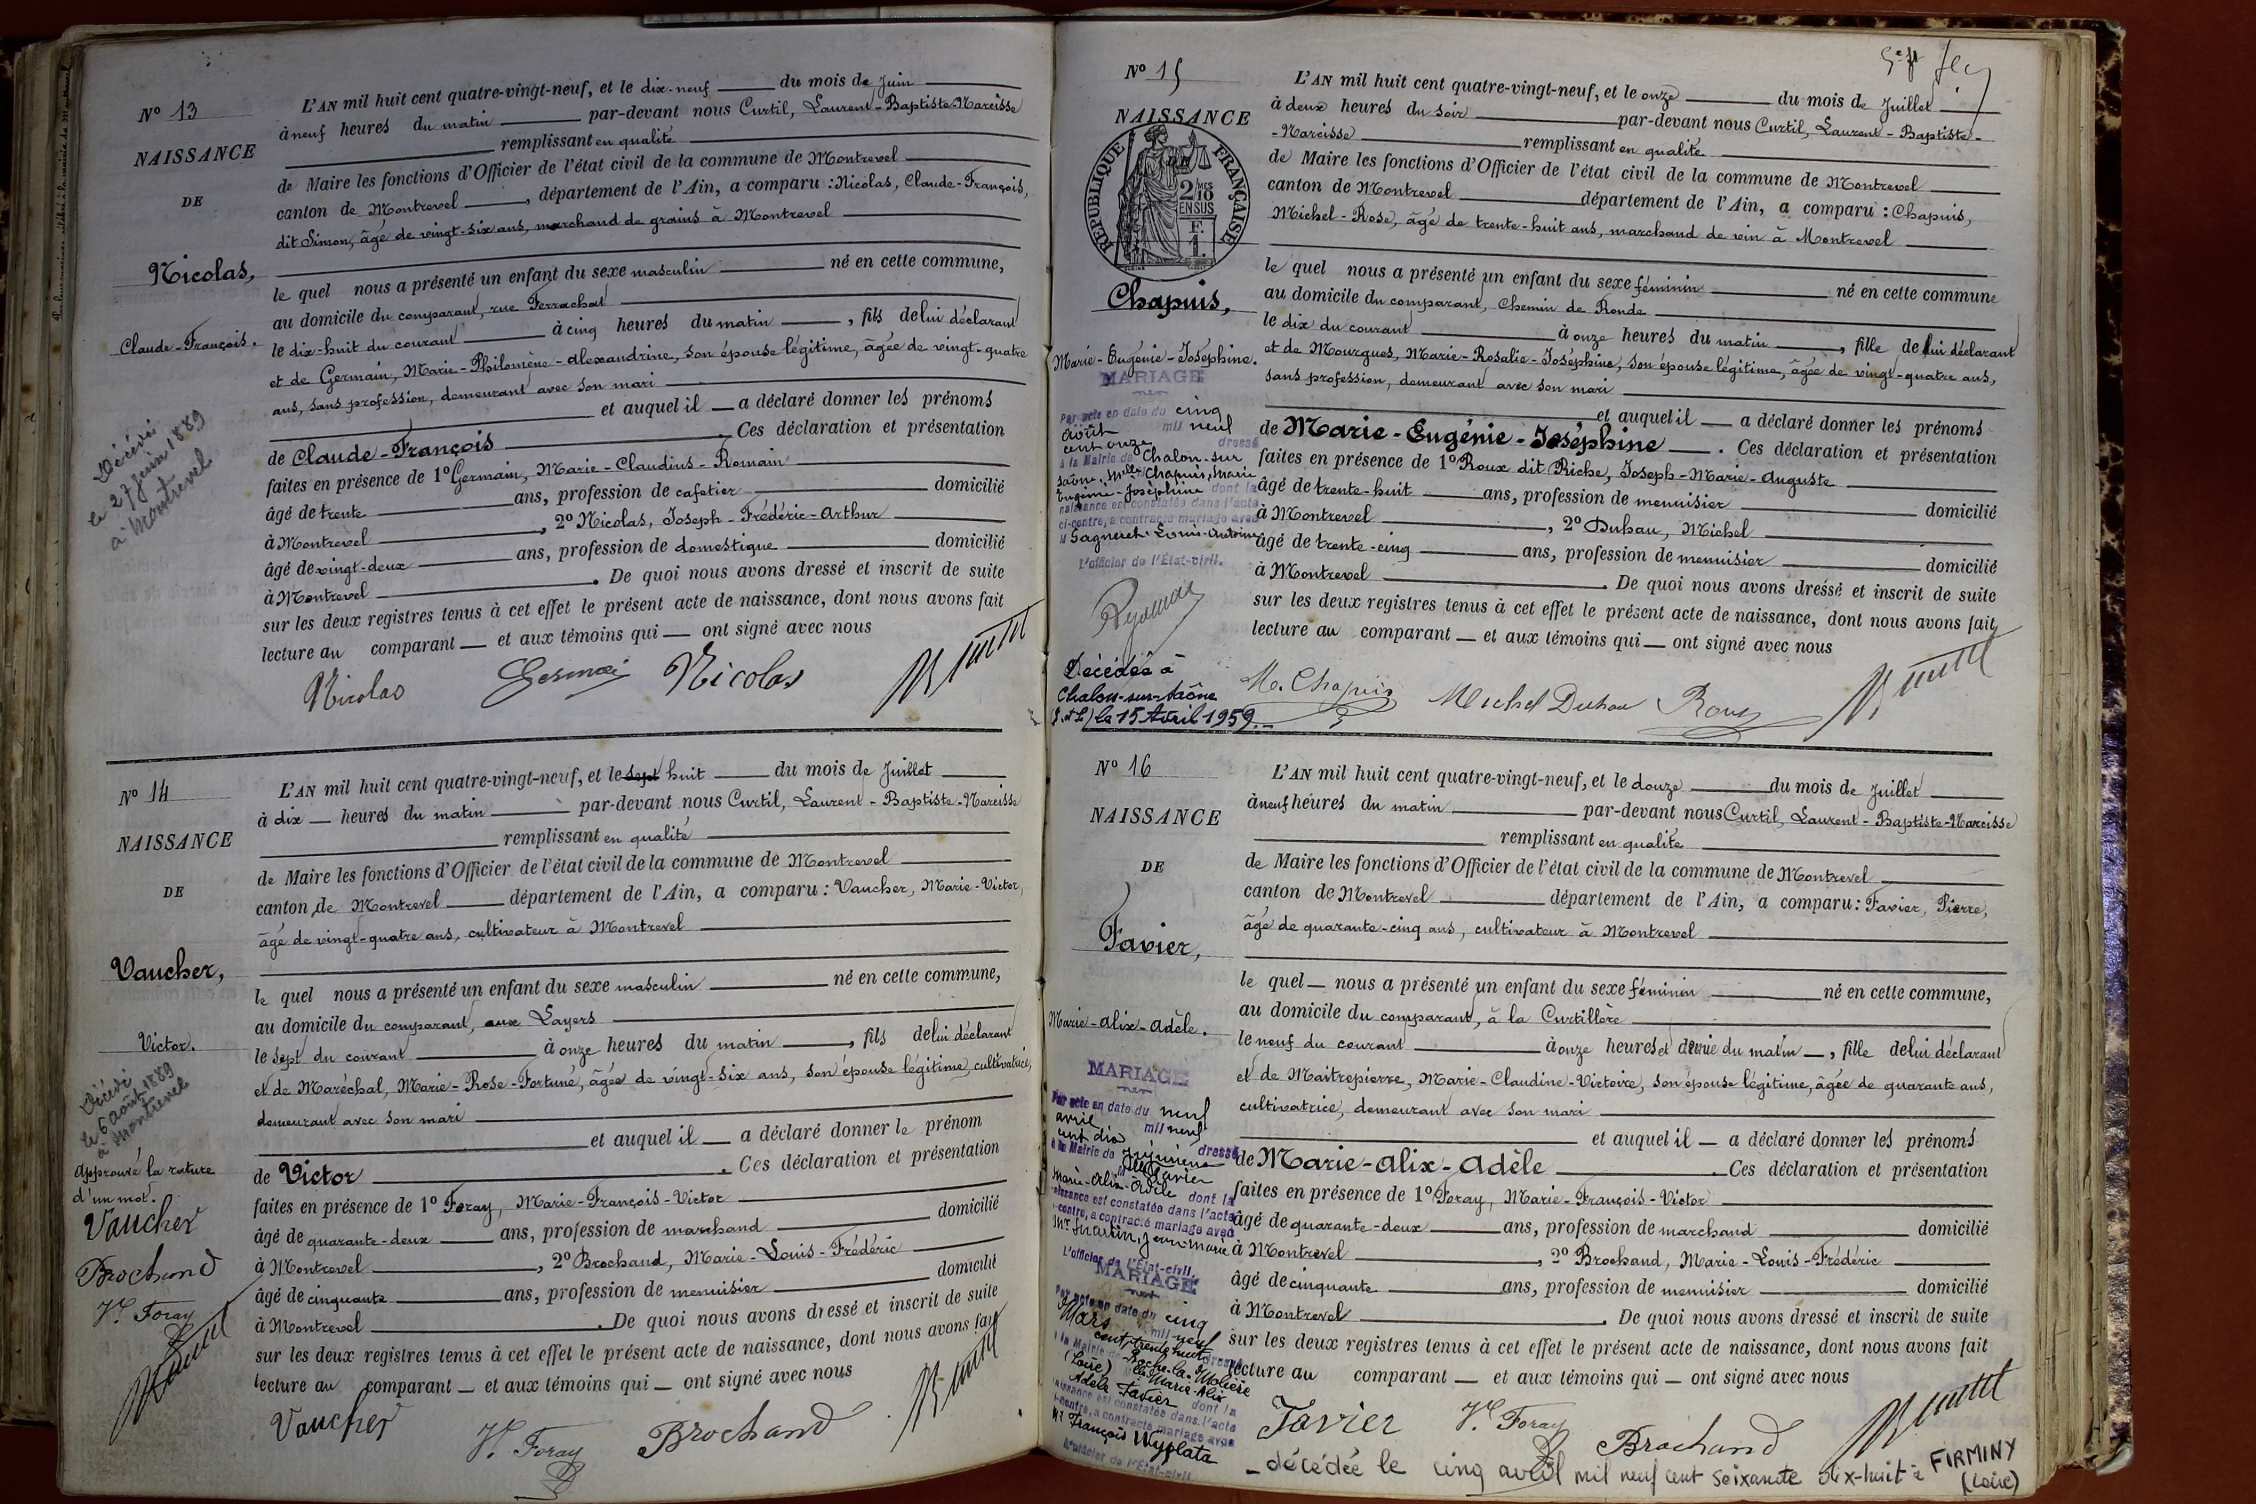 N° 13
NAISSANCE
DE
Nicolas,
Claude-François.
Décédé
le 27 juin 1889
à Montrevel
L'AN mil huit cent quatre-vingt-neuf, et le dix-neuf du mois de Juin
à neuf heures du matin par-devant nous Curtil, Laurent-Baptiste-Narcisse
remplissant en qualité
de Maire les fonctions d'Officier de l'état civil de la commune de Montrevel
canton de Montrevel, département de l'Ain, a comparu : Nicolas, Claude-François,
dit Simon, âgé de vingt-six ans, marchand de grains à Montrevel
le quel nous a présenté un enfant du sexe masculin né en cette commune,
au domicile du comparant, rue Ferrachat
le dix-huit du courant à cinq heures du matin, fils de lui déclarant
et de Germain, Marie-Philomène-Alexandrine, son épouse légitime, âgée de vingt-quatre
ans, sans profession, demeurant avec son mari
et auquel il a déclaré donner les prénoms
de Claude-François. Ces déclaration et présentation
faites en présence de 1° Germain, Marie-Claudius-Romain
âgé de trente ans, profession de cafetier domicilié
à Montrevel, 2° Nicolas, Joseph-Frédéric-Arthur
âgé de vingt-deux ans, profession de domestique domicilié
à Montrevel. De quoi nous avons dressé et inscrit de suite
sur les deux registres tenus à cet effet le présent acte de naissance, dont nous avons fait
lecture au comparant et aux témoins qui ont signé avec nous
Nicolas Germain Nicolas
N° 14
NAISSANCE
DE
Vaucher,
Victor.
Décédé
le 6 août 1889
à Montrevel
Approuvé la rature
d'un mot.
Vaucher
Brochand
Vr Foray
L'AN mil huit cent quatre-vingt-neuf, et le sept huit du mois de Juillet
à dix heures du matin par-devant nous Curtil, Laurent-Baptiste-Narcisse
remplissant en qualité
de Maire les fonctions d'Officier de l'état civil de la commune de Montrevel
canton de Montrevel département de l'Ain, a comparu : Vaucher, Marie-Victor,
âgé de vingt-quatre ans, cultivateur à Montrevel
le quel nous a présenté un enfant du sexe masculin né en cette commune,
au domicile du comparant, aux Layers
le sept du courant à onze heures du matin, fils de lui déclarant
et de Maréchal, Marie-Rose-Fortuné, âgée de vingt-six ans, son épouse légitime, cultivatrice,
demeurant avec son mari
et auquel il a déclaré donner le prénom
de Victor. Ces déclaration et présentation
faites en présence de 1° Foray, Marie-François-Victor
âgé de quarante-deux ans, profession de marchand domicilié
à Montrevel, 2° Brochand, Marie-Louis-Frédéric
âgé de cinquante ans, profession de menuisier domicilié
à Montrevel. De quoi nous avons dressé et inscrit de suite
sur les deux registres tenus à cet effet le présent acte de naissance, dont nous avons fait
lecture au comparant et aux témoins qui ont signé avec nous
Vaucher Vr Foray Brochand
N° 15
NAISSANCE
RÉPUBLIQUE FRANÇAISE
2/10 MES EN SUS
F. 1.
Chapuis,
Marie-Eugénie-Joséphine.
MARIAGE
Par acte en date du cinq
août mil neuf
cent onze dressé
à la Mairie de Chalon-sur
Saône, Mlle Chapuis, Marie
Eugénie-Joséphine dont la
naissance est constatée dans l'acte
ci-contre, a contracté mariage avec
M Gagneret Louis-Antoine
L'officier de l'État-civil.
Décédée à
Chalon-sur-Saône
(S.et L) le 15 Avril 1959.
L'AN mil huit cent quatre-vingt-neuf, et le onze du mois de Juillet
à deux heures du soir par-devant nous Curtil, Laurent-Baptiste-
-Narcisse remplissant en qualité
de Maire les fonctions d'Officier de l'état civil de la commune de Montrevel
canton de Montrevel département de l'Ain, a comparu : Chapuis,
Michel-Rose, âgé de trente-huit ans, marchand de vin à Montrevel
le quel nous a présenté un enfant du sexe féminin né en cette commune
au domicile du comparant, Chemin de Ronde
le dix du courant à onze heures du matin, fille de lui déclarant
et de Mourgues, Marie-Rosalie-Joséphine, son épouse légitime, âgée de vingt-quatre ans,
sans profession, demeurant avec son mari
et auquel il a déclaré donner les prénoms
de Marie-Eugénie-Joséphine. Ces déclaration et présentation
faites en présence de 1° Roux dit Riche, Joseph-Marie-Auguste
âgé de trente-huit ans, profession de menuisier domicilié
à Montrevel, 2° Duhau, Michel
âgé de trente-cinq ans, profession de menuisier domicilié
à Montrevel. De quoi nous avons dressé et inscrit de suite
sur les deux registres tenus à cet effet le présent acte de naissance, dont nous avons fait
lecture au comparant et aux témoins qui ont signé avec nous
M. Chapuis Michel Duhau Roux
N° 16
NAISSANCE
DE
Favier,
Marie-Alix-Adèle.
MARIAGE
Par acte en date du neuf
avril mil neuf
cent dix dressé
à la Mairie de
Mlle Favier
Marie-Alix-Adèle dont la
naissance est constatée dans l'acte
ci-contre, a contracté mariage avec
Mr Martin, Jean-Marie
L'officier de l'État-civil.
MARIAGE
Par acte en date du cinq
Mars mil-neuf
cent trente huit dressé
à la Mairie de Roche-la-Molière
(Loire) Marie-Alix
Adèle Favier dont la
naissance est constatée dans l'acte
ci-contre, a contracté mariage avec
Mr François Wyplata
L'officier de l'État-civil
L'AN mil huit cent quatre-vingt-neuf, et le douze du mois de Juillet
à neuf heures du matin par-devant nous Curtil, Laurent-Baptiste-Narcisse
remplissant en qualité
de Maire les fonctions d'Officier de l'état civil de la commune de Montrevel
canton de Montrevel département de l'Ain, a comparu : Favier, Pierre,
âgé de quarante-cinq ans, cultivateur à Montrevel
le quel nous a présenté un enfant du sexe féminin né en cette commune,
au domicile du comparant, à la Curtillère
le neuf du courant à onze heures et demie du matin, fille de lui déclarant
et de Maitrepierre, Marie-Claudine-Victoire, son épouse légitime, âgée de quarante ans,
cultivatrice, demeurant avec son mari
et auquel il a déclaré donner les prénoms
de Marie-Alix-Adèle. Ces déclaration et présentation
faites en présence de 1° Foray, Marie-François-Victor
âgé de quarante-deux ans, profession de marchand domicilié
à Montrevel, 2° Brochand, Marie-Louis-Frédéric
âgé de cinquante ans, profession de menuisier domicilié
à Montrevel. De quoi nous avons dressé et inscrit de suite
sur les deux registres tenus à cet effet le présent acte de naissance, dont nous avons fait
lecture au comparant et aux témoins qui ont signé avec nous
Favier Vr Foray Brochand
décédée le cinq avril mil neuf cent soixante dix-huit à FIRMINY
(Loire)